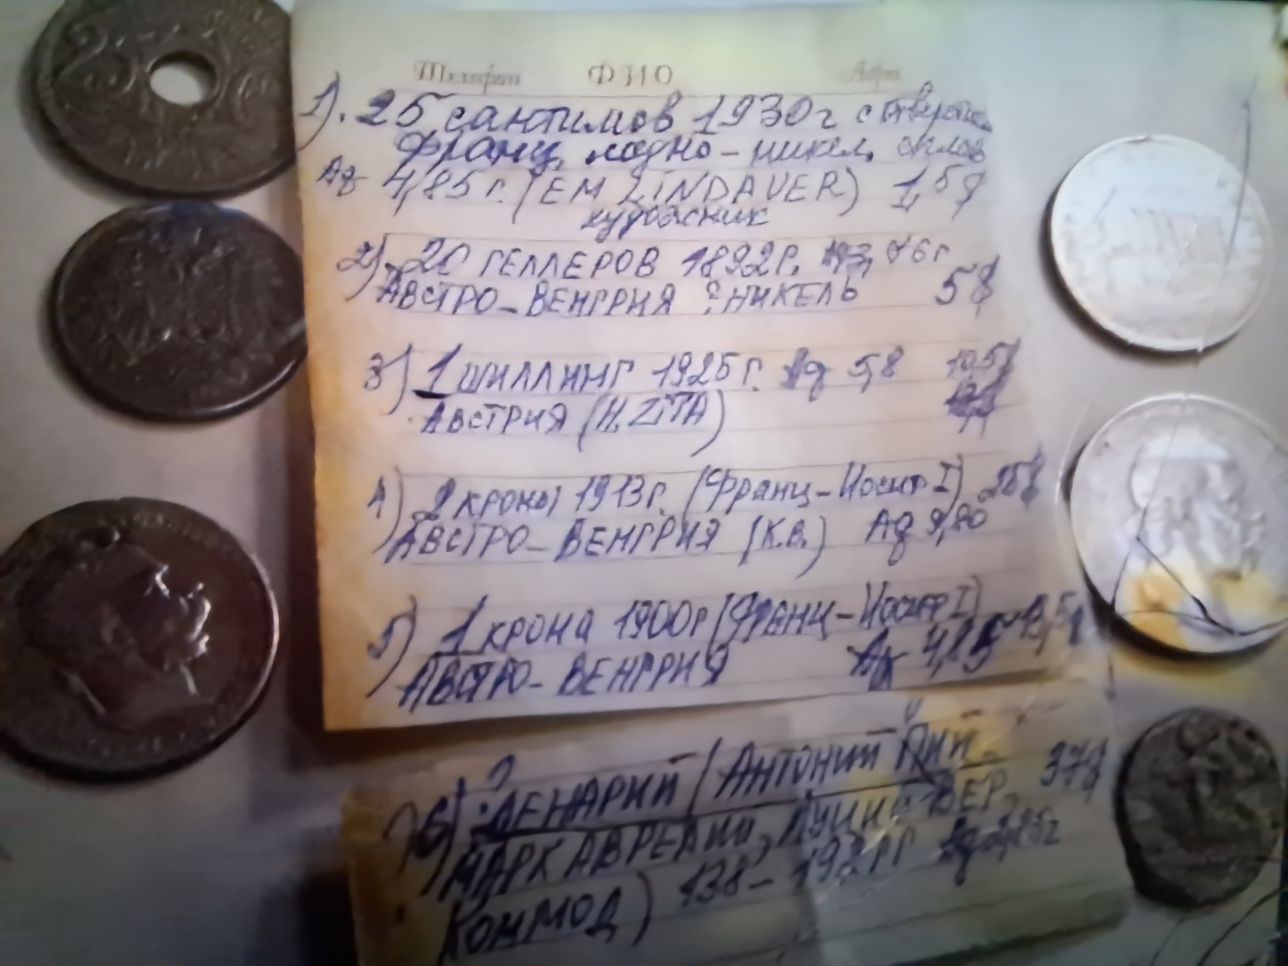 Телефон ФИО Адрес
1). 25 сантимов 1930г с отверсти
Франц. медно-никел. сплав
Ag 4,85 г. (EM LINDAUER) 1,5$
художник
2) 20 ГЕЛЛЕРОВ 1892Г.
АВСТРО-ВЕНГРИЯ НИКЕЛЬ 5$
3) 1 ШИЛЛИНГ 1925Г. Ag 5,8 10,5$
АВСТРИЯ
4) 2 КРОНЫ 1913Г. (ФРАНЦ-ИОСИФ I) 25$
АВСТРО-ВЕНГРИЯ (К.В.) Ag 9,80
5) 1 КРОНА 1900Г (ФРАНЦ-ИОСИФ I)
АВСТРО-ВЕНГРИЯ Ag
6) ДЕНАРИЙ (АНТОНИЙ ПИЙ- 37$
МАРК АВРЕЛИЙ, ЛУЦИЙ ВЕР,
КОММОД) 138-192ГГ Ag